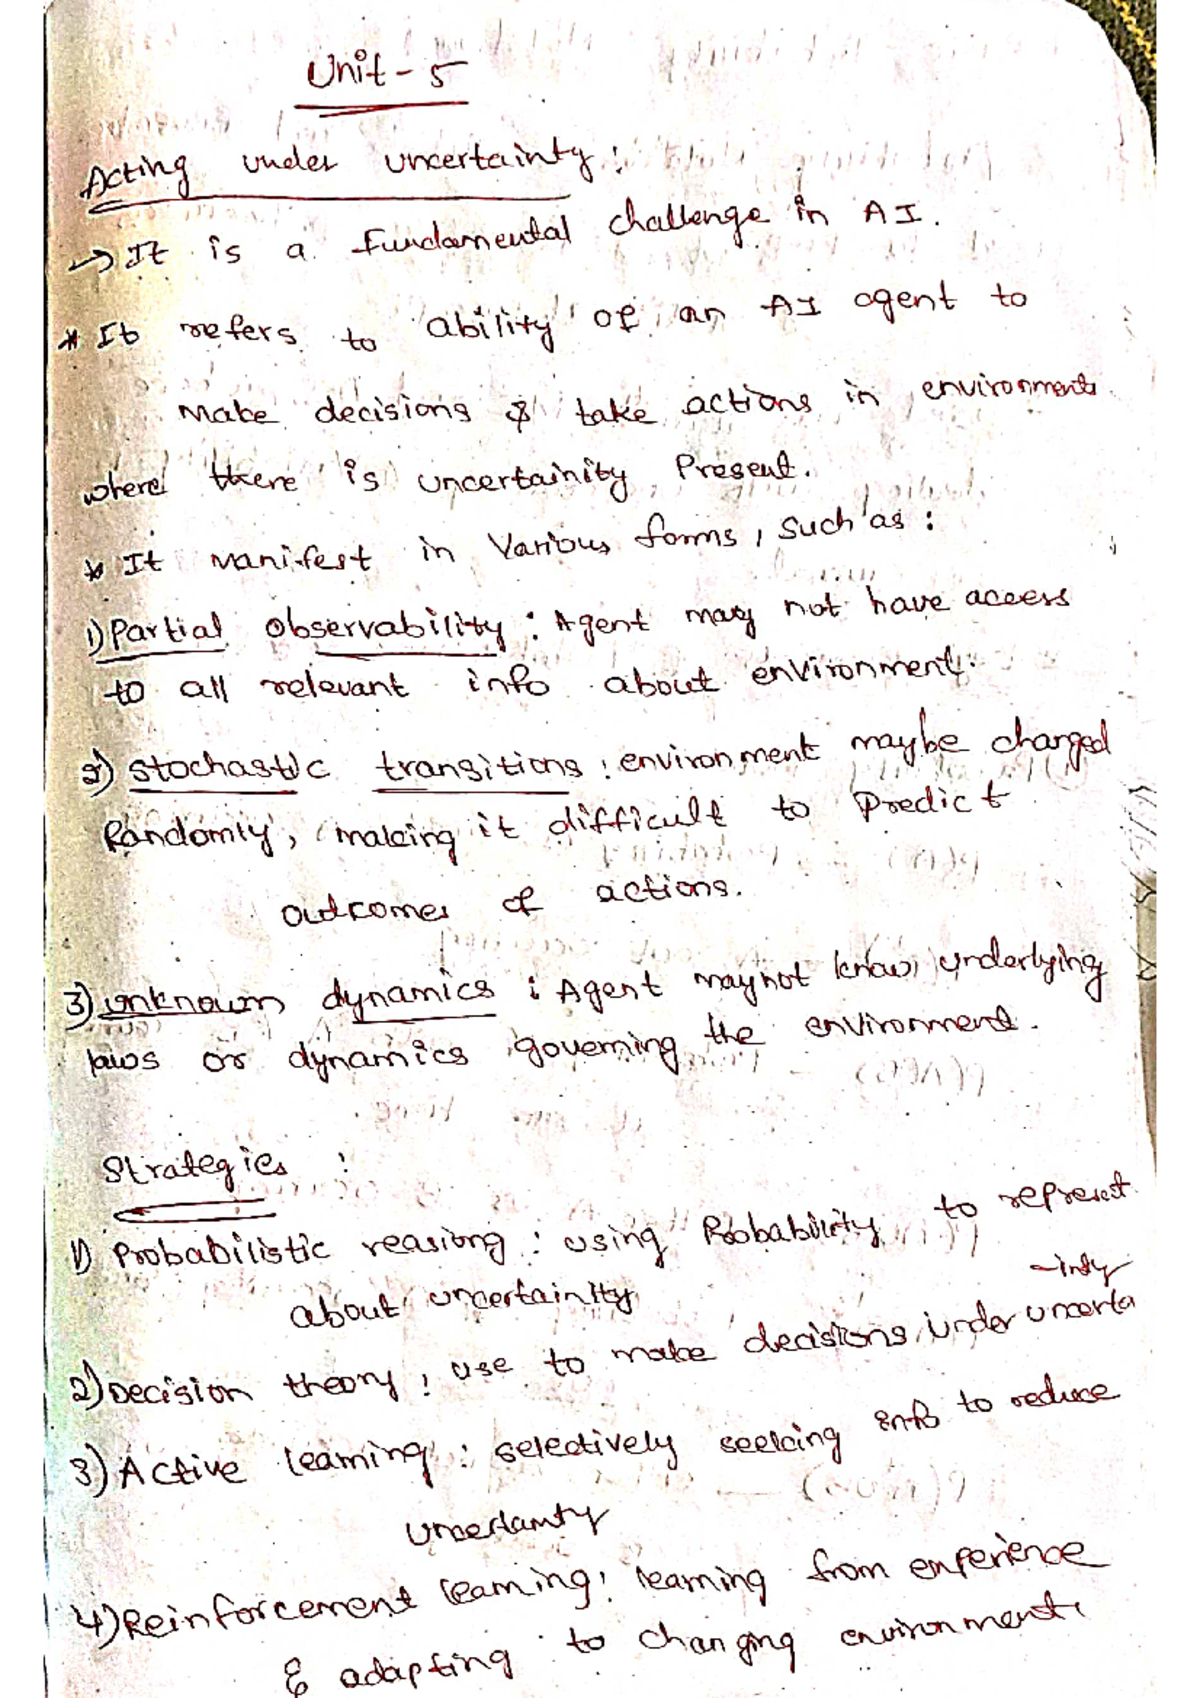 Unit - 5
Acting under uncertainty :
→ It is a fundamental challenge in AI.
* It refers to ability of an AI agent to
make decisions & take actions in environments
where there is uncertainity Present.
* It manifest in Various forms, such as :
1) Partial Observability : Agent may not have access
to all relevant info about environment.
2) stochastic transitions : environment maybe changed
Randomly, making it difficult to Predict
outcomes of actions.
3) unknown dynamics : Agent maynot know underlying
laws or dynamics governing the environment.
Strategies :
1) Probabilistic reasiong : using Probability to represent
about uncertainity
2) Decision theory : use to make decisions under uncerta
-inty
3) Active learning : selectively seeking info to reduce
uncertainty
4) Reinforcement learning : learning from experience
& adapting to changing environment.